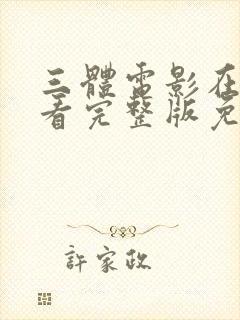 三體電影在
看完整版免
許家政